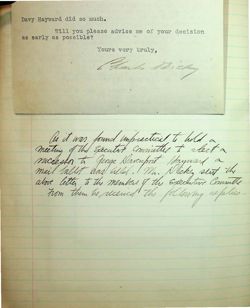 Davy Hayward did so much.
Will you please advise me of your decision
as early as possible?
Yours very truly,
As it was found impractical to hold a
meeting of the Executive Committee to elect a
successor to George Davenport Hayward a
mail ballot was used. Mr. Dickey sent the
above letter to the members of the executive Committee
From them he received the following replies-